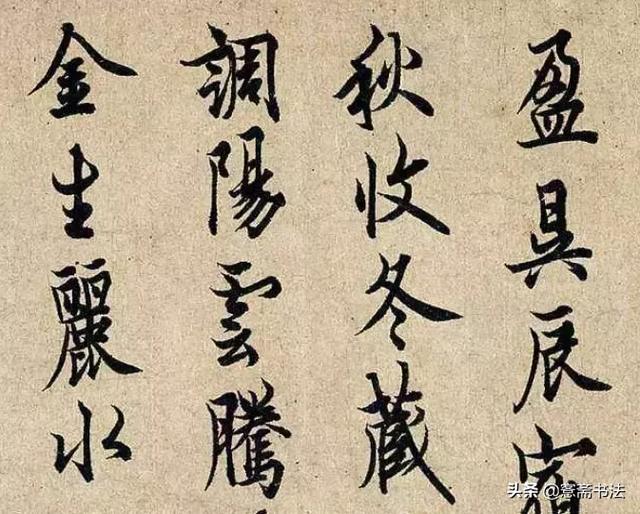 盈昃辰宿
秋收冬藏
調陽雲騰
金生麗水
头条 @愙斋书法